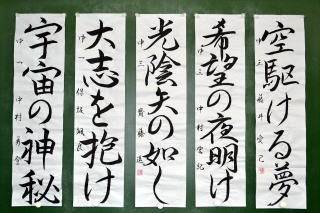 空駆ける夢
中三
希望の夜明け
中三 中村
光陰矢の如し
中三
大志を抱け
中一
宇宙の神秘
中一 中村